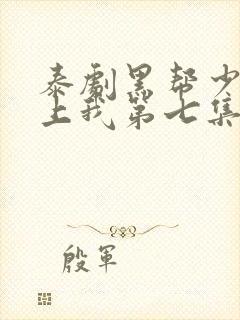 泰剧黑帮少
上我第七集
殷军